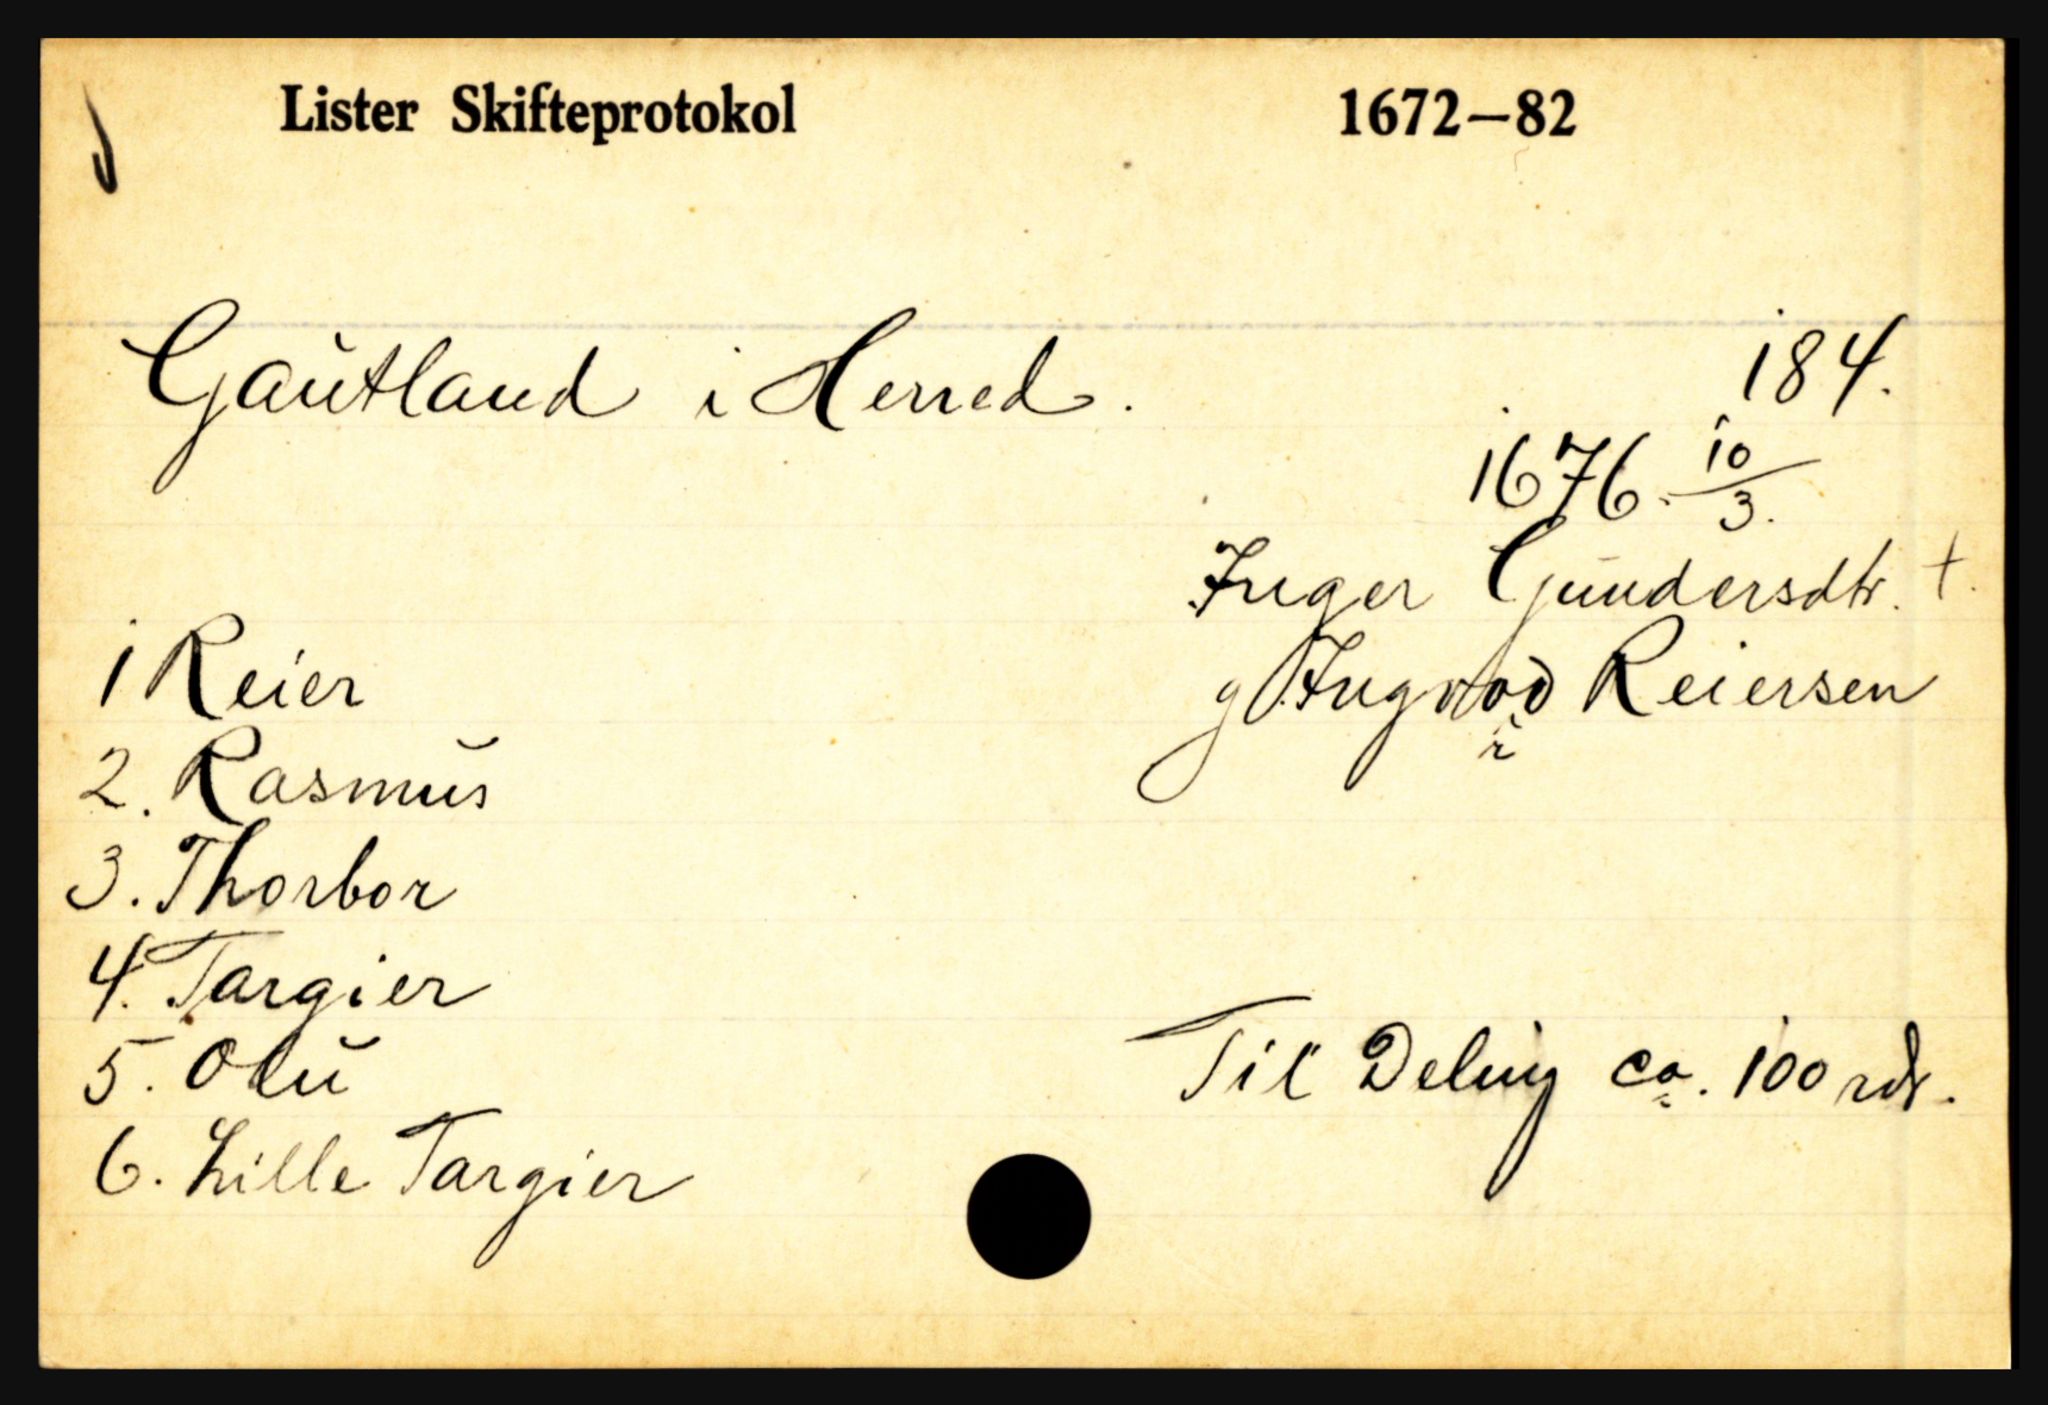 Lister Skifteprotokol 1672–82
Gautland i Herred. 184.
1676. 10/3.
Inger Gundersdtr. †.
1 Reier g. Ingvod Reiersen
r
2. Rasmus
3. Thorbor
4. Targier
5. Olu Til Deling ca. 100 rdr.
6. Lille Targier